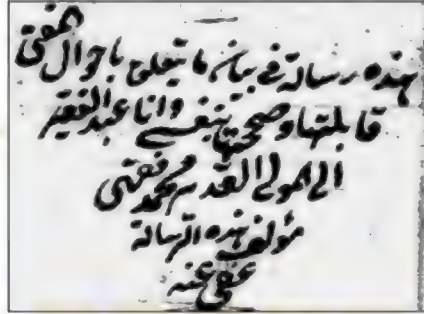 هذه رسالة في بيان ما يتعلق باحوال المفتى
قابلتها وصححتها بنفسي وانا عبد الفقير
الى المولى القدير محمد فقهى
مؤلف هذه الرسالة
عفى عنه